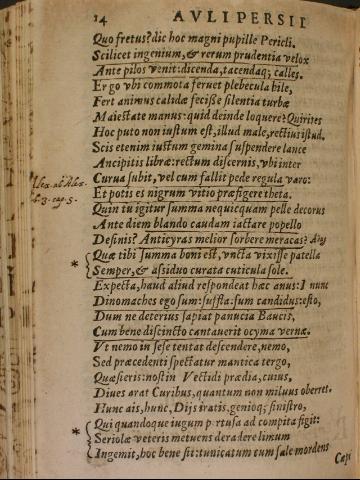 14 AVLI PERSII
Quo fretus? dic hoc magni pupille Pericli.
Scilicet ingenium, & rerum prudentia velox
Ante pilos venit: dicenda, tacendaq; calles.
Ergo vbi commota feruet plebecula bile,
Fert animus calidæ fecisse silentia turbæ
Maiestate manus: quid deinde loquere? Quirites
Hoc puto non iustum est, illud male, rectius istud.
Scis etenim iustum gemina suspendere lance
Ancipitis libræ: rectum discernis, vbi inter
Curua subit, vel cum fallit pede regula varo:
Et potis es nigrum vitio præfigere theta.
Quin tu igitur summa nequicquam pelle decorus
Ante diem blando caudam iactare popello
Desinis? Anticyras melior sorbere meracas?
Quæ tibi summa boni est, vncta vixisse patella
* Semper, & assiduo curata cuticula sole.
Expecta, haud aliud respondeat hæc anus: I nunc
Dinomaches ego sum: suffla: sum candidus: esto,
Dum ne deterius sapiat panucia Baucis,
Cum bene discincto cantauerit ocyma vernæ.
Vt nemo in sese tentat descendere, nemo,
Sed præcedenti spectatur mantica tergo,
Quæsieris: nostin Vectidi prædia, cuius,
Diues arat Curibus, quantum non miluus oberret.
Hunc ais, hunc, Dijs iratis, genioq; sinistro,
Qui quandoque iugum p rtusa ad compita figit:
* Seriolæ veteris metuens deradere limum
Ingemit, hoc bene sit: tunicatum cum sale mordens
Cæpe